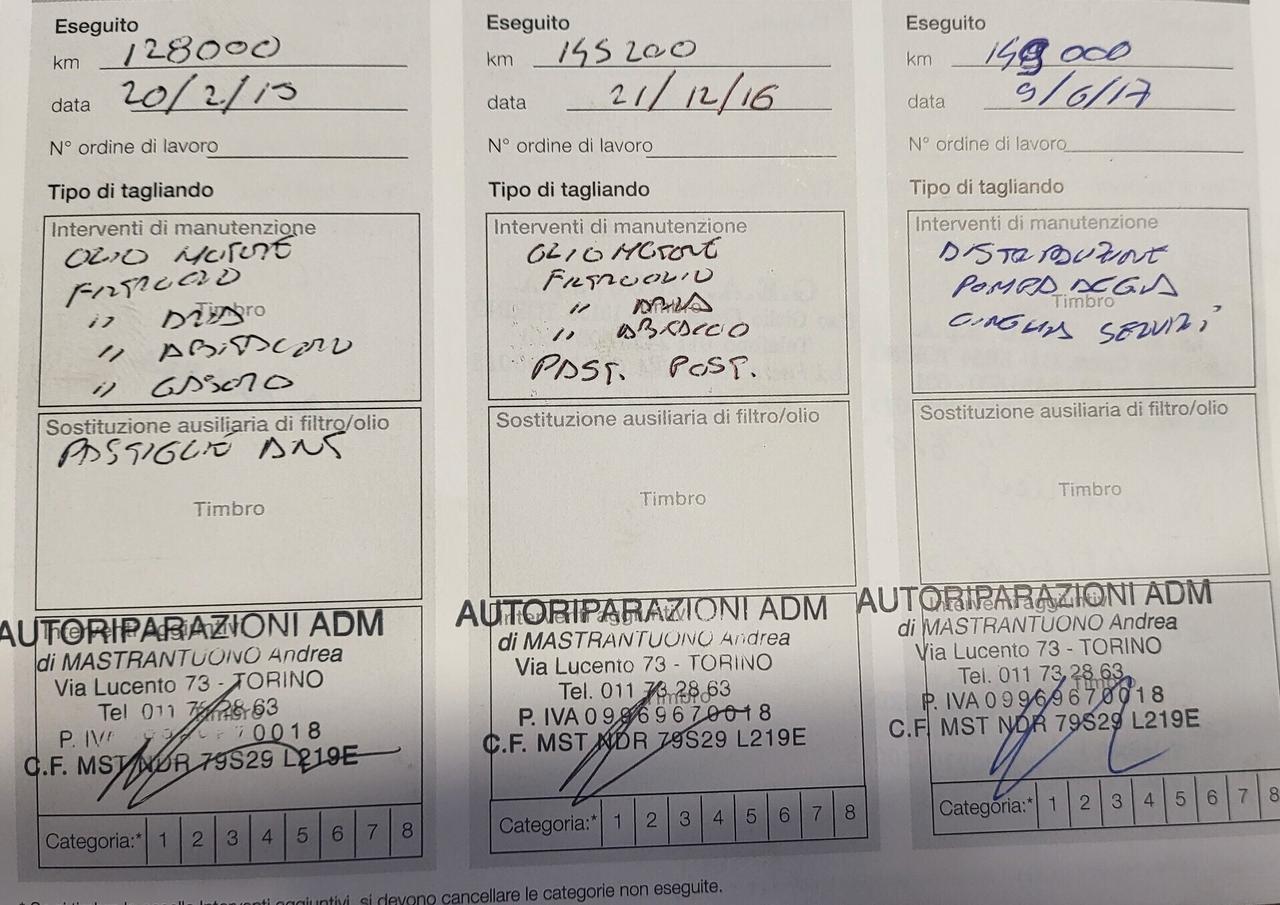 Eseguito
km 128000
data 20/2/15
N° ordine di lavoro
Tipo di tagliando
Interventi di manutenzione
OLIO MOTORE
FILTRO OLIO
" ARIA
Timbro
" ABITACOLO
" GASOLIO
Sostituzione ausiliaria di filtro/olio
PASTIGLIE ANT
Timbro
Interventi aggiuntivi
AUTORIPARAZIONI ADM
di MASTRANTUONO Andrea
Via Lucento 73 - TORINO
Tel 011 73 28 63
Timbro
P. IV 0018
C.F. MST NDR 79S29 L219E
Categoria:* 1 2 3 4 5 6 7 8
Eseguito
km 145200
data 21/12/16
N° ordine di lavoro
Tipo di tagliando
Interventi di manutenzione
OLIO MOTORE
FILTRO OLIO
" ARIA
Timbro
" ABITACOLO
PAST. POST.
Sostituzione ausiliaria di filtro/olio
Timbro
Interventi aggiuntivi
AUTORIPARAZIONI ADM
di MASTRANTUONO Andrea
Via Lucento 73 - TORINO
Tel. 011 73 28 63
Timbro
P. IVA 09969670018
C.F. MST NDR 79S29 L219E
Categoria:* 1 2 3 4 5 6 7 8
Eseguito
km 149 000
data 9/6/17
N° ordine di lavoro
Tipo di tagliando
Interventi di manutenzione
DISTRIBUZIONE
POMPA ACQUA
Timbro
CINGHIA SERVIZI
Sostituzione ausiliaria di filtro/olio
Timbro
Interventi aggiuntivi
AUTORIPARAZIONI ADM
di MASTRANTUONO Andrea
Via Lucento 73 - TORINO
Tel. 011 73 28 63
Timbro
P. IVA 09969670018
C.F. MST NDR 79S29 L219E
Categoria:* 1 2 3 4 5 6 7 8
interventi aggiuntivi, si devono cancellare le categorie non eseguite.